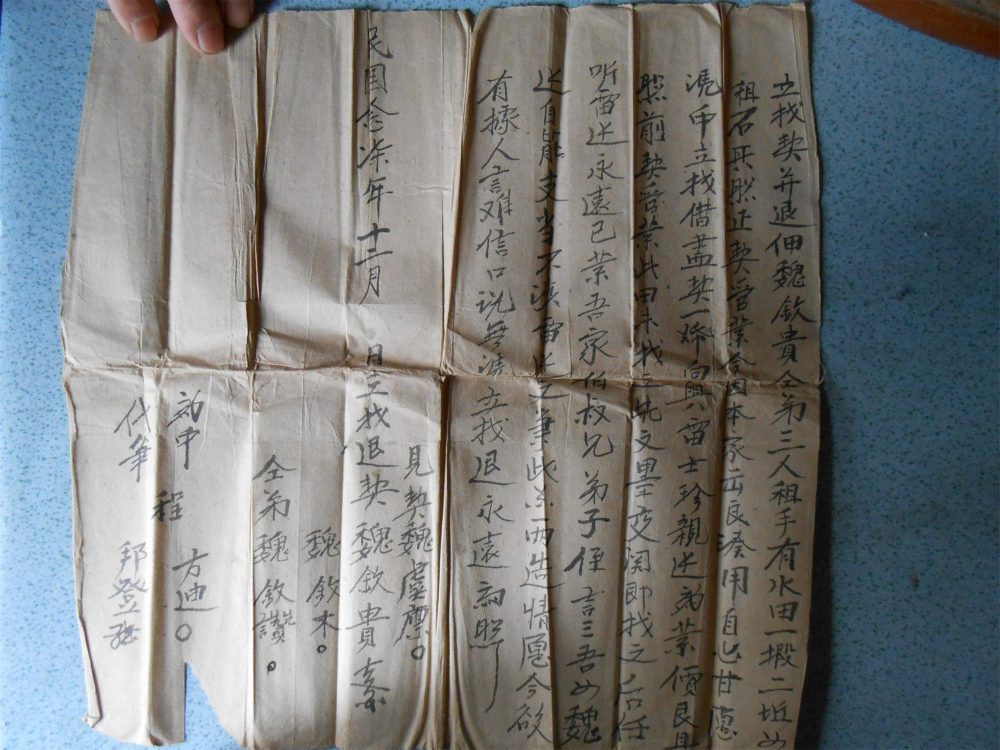 立找契并退佃魏欽貴仝弟三人租手有水田一塅二坵
租石正照正契管業今因本家缺良湊用自己甘愿
憑中立找借盡契一帋與雷士珍親邊為業價良具
照前契管業此田未找立先文墨交関即找之后任
听雷边永遠己業吾家伯叔兄弟子侄言三吾四魏
边自能支当不涉雷边之事此系両造情愿今欲
有據人言难信口说無憑立找退永遠為照
見契魏虞廪
民国念柒年十二月 日立找退契魏欽貴
魏欽木
仝弟魏欽讚
為中 程方迪
代筆 邦登